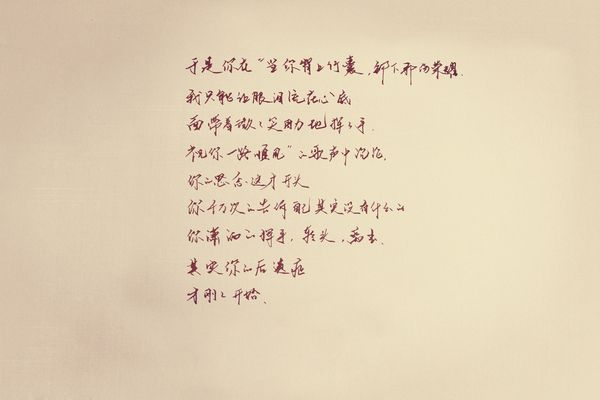 于是你在“当你背上行囊，卸下那份荣耀．
我只能让眼泪流在心底
面带着微々笑用力地挥々手．
祝你一路顺风”的歌声中沉沦．
你的思念这才开头
你千万次的告诉自己其实没有什么的
你潇洒的挥手，转头，离去．
其实你的后遗症
才刚々开始．